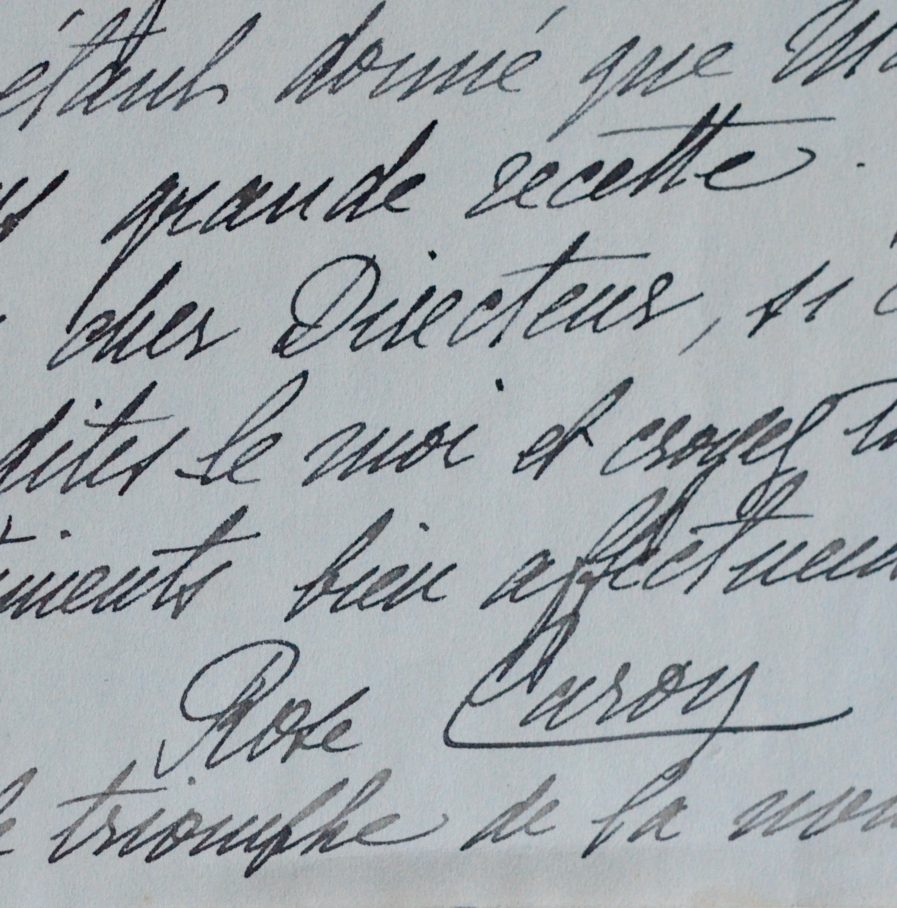 étant donné que
grande recette.
cher Directeur, si
dites-le moi et croyez
timents bien affectueux
Rose Caron
triomphe de la